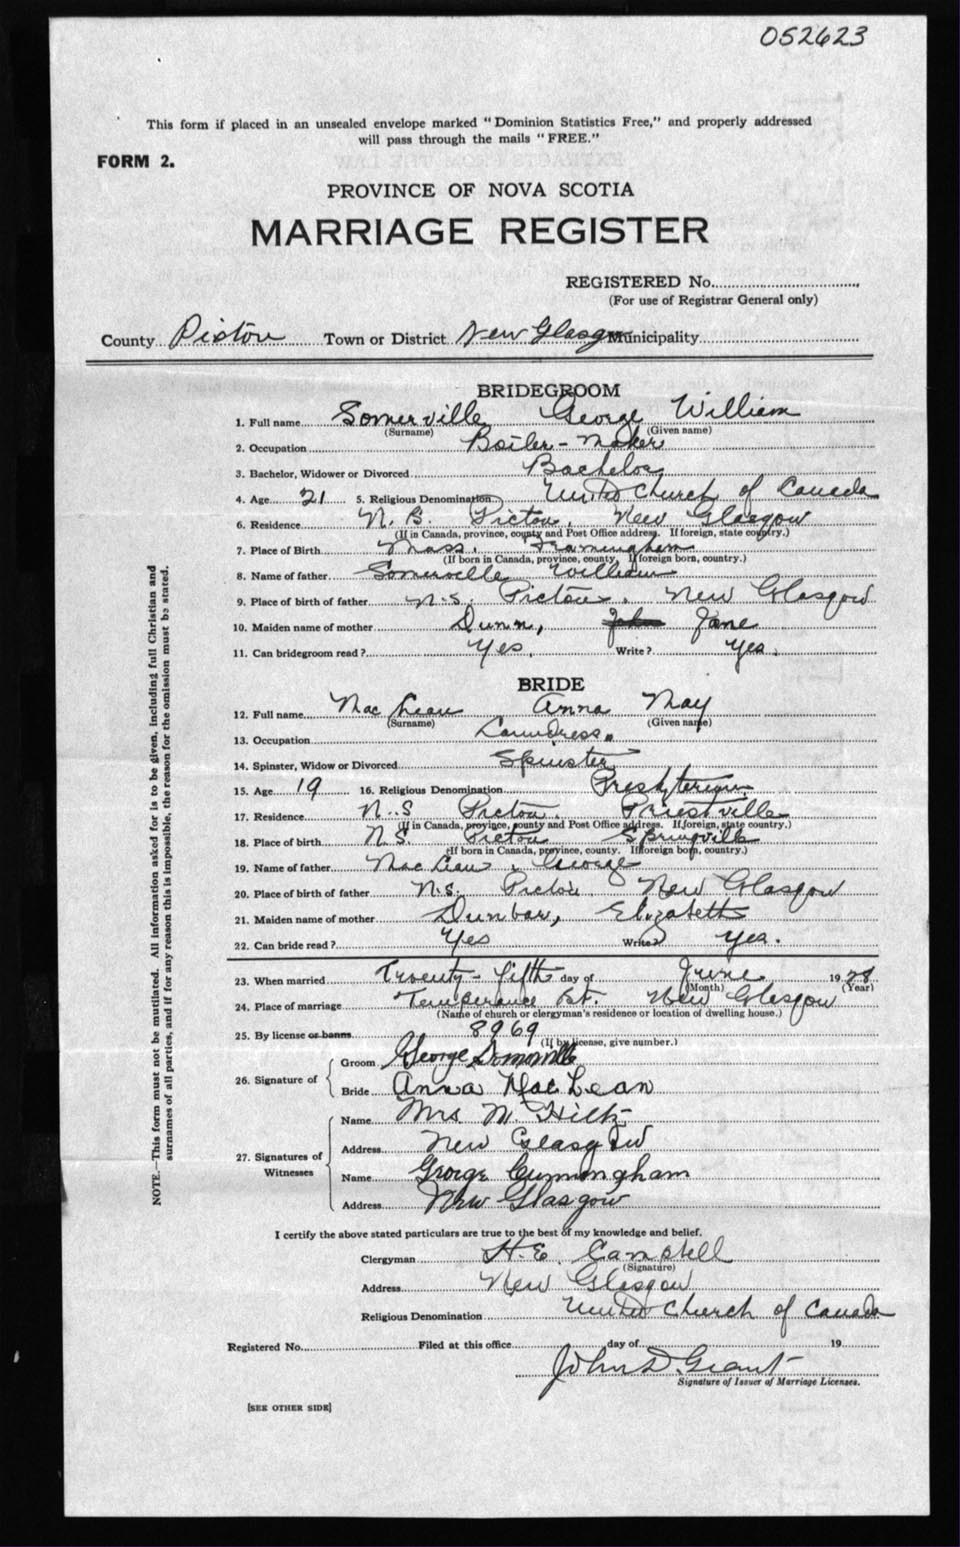 052623
This form if placed in an unsealed envelope marked "Dominion Statistics Free," and properly addressed
will pass through the mails "FREE."
FORM 2.
PROVINCE OF NOVA SCOTIA
MARRIAGE REGISTER
REGISTERED No.
(For use of Registrar General only)
County Pictou Town or District New Glasgow Municipality
BRIDEGROOM
1. Full name Somerville George William
(Surname) (Given name)
2. Occupation Boiler-Maker
3. Bachelor, Widower or Divorced Bachelor
4. Age 21 5. Religious Denomination United Church of Canada
6. Residence N. B. Pictou, New Glasgow
(If in Canada, province, county and Post Office address. If foreign, state country.)
7. Place of Birth Mass. Framingham
(If born in Canada, province, county. If foreign born, country.)
8. Name of father Somerville William
9. Place of birth of father N.S. Pictou. New Glasgow
10. Maiden name of mother Dunn, John Jane
11. Can bridegroom read? Yes. Write? Yes.
BRIDE
12. Full name MacLean Anna May
(Surname) (Given name)
13. Occupation Laundress.
14. Spinster, Widow or Divorced Spinster
15. Age 19 16. Religious Denomination Presbyterian
17. Residence N.S Pictou. Priestville
(If in Canada, province, county and Post Office address. If foreign, state country.)
18. Place of birth N.S. Pictou Springville
(If born in Canada, province, county. If foreign born, country.)
19. Name of father MacLean, George
20. Place of birth of father N.S. Pictou New Glasgow
21. Maiden name of mother Dunbar, Elizabeth
22. Can bride read? Yes Write? Yes.
23. When married Twenty-fifth day of June 1928
(Month) (Year)
24. Place of marriage Temperance St. New Glasgow
(Name of church or clergyman's residence or location of dwelling house.)
25. By license or banns 8969
(If by license, give number.)
26. Signature of Groom George Somerville
Bride Anna MacLean
27. Signatures of Witnesses Name Mrs W. Hiltz
Address New Glasgow
Name George Cunningham
Address New Glasgow
I certify the above stated particulars are true to the best of my knowledge and belief.
Clergyman H.E. Campbell
(Signature)
Address New Glasgow
Religious Denomination United Church of Canada
Registered No. Filed at this office day of 19
John D Grant
Signature of Issuer of Marriage Licenses.
[SEE OTHER SIDE]
NOTE.—This form must not be mutilated. All information asked for is to be given, including full Christian and
surnames of all parties, and if for any reason this is impossible, the reason for the omission must be stated.